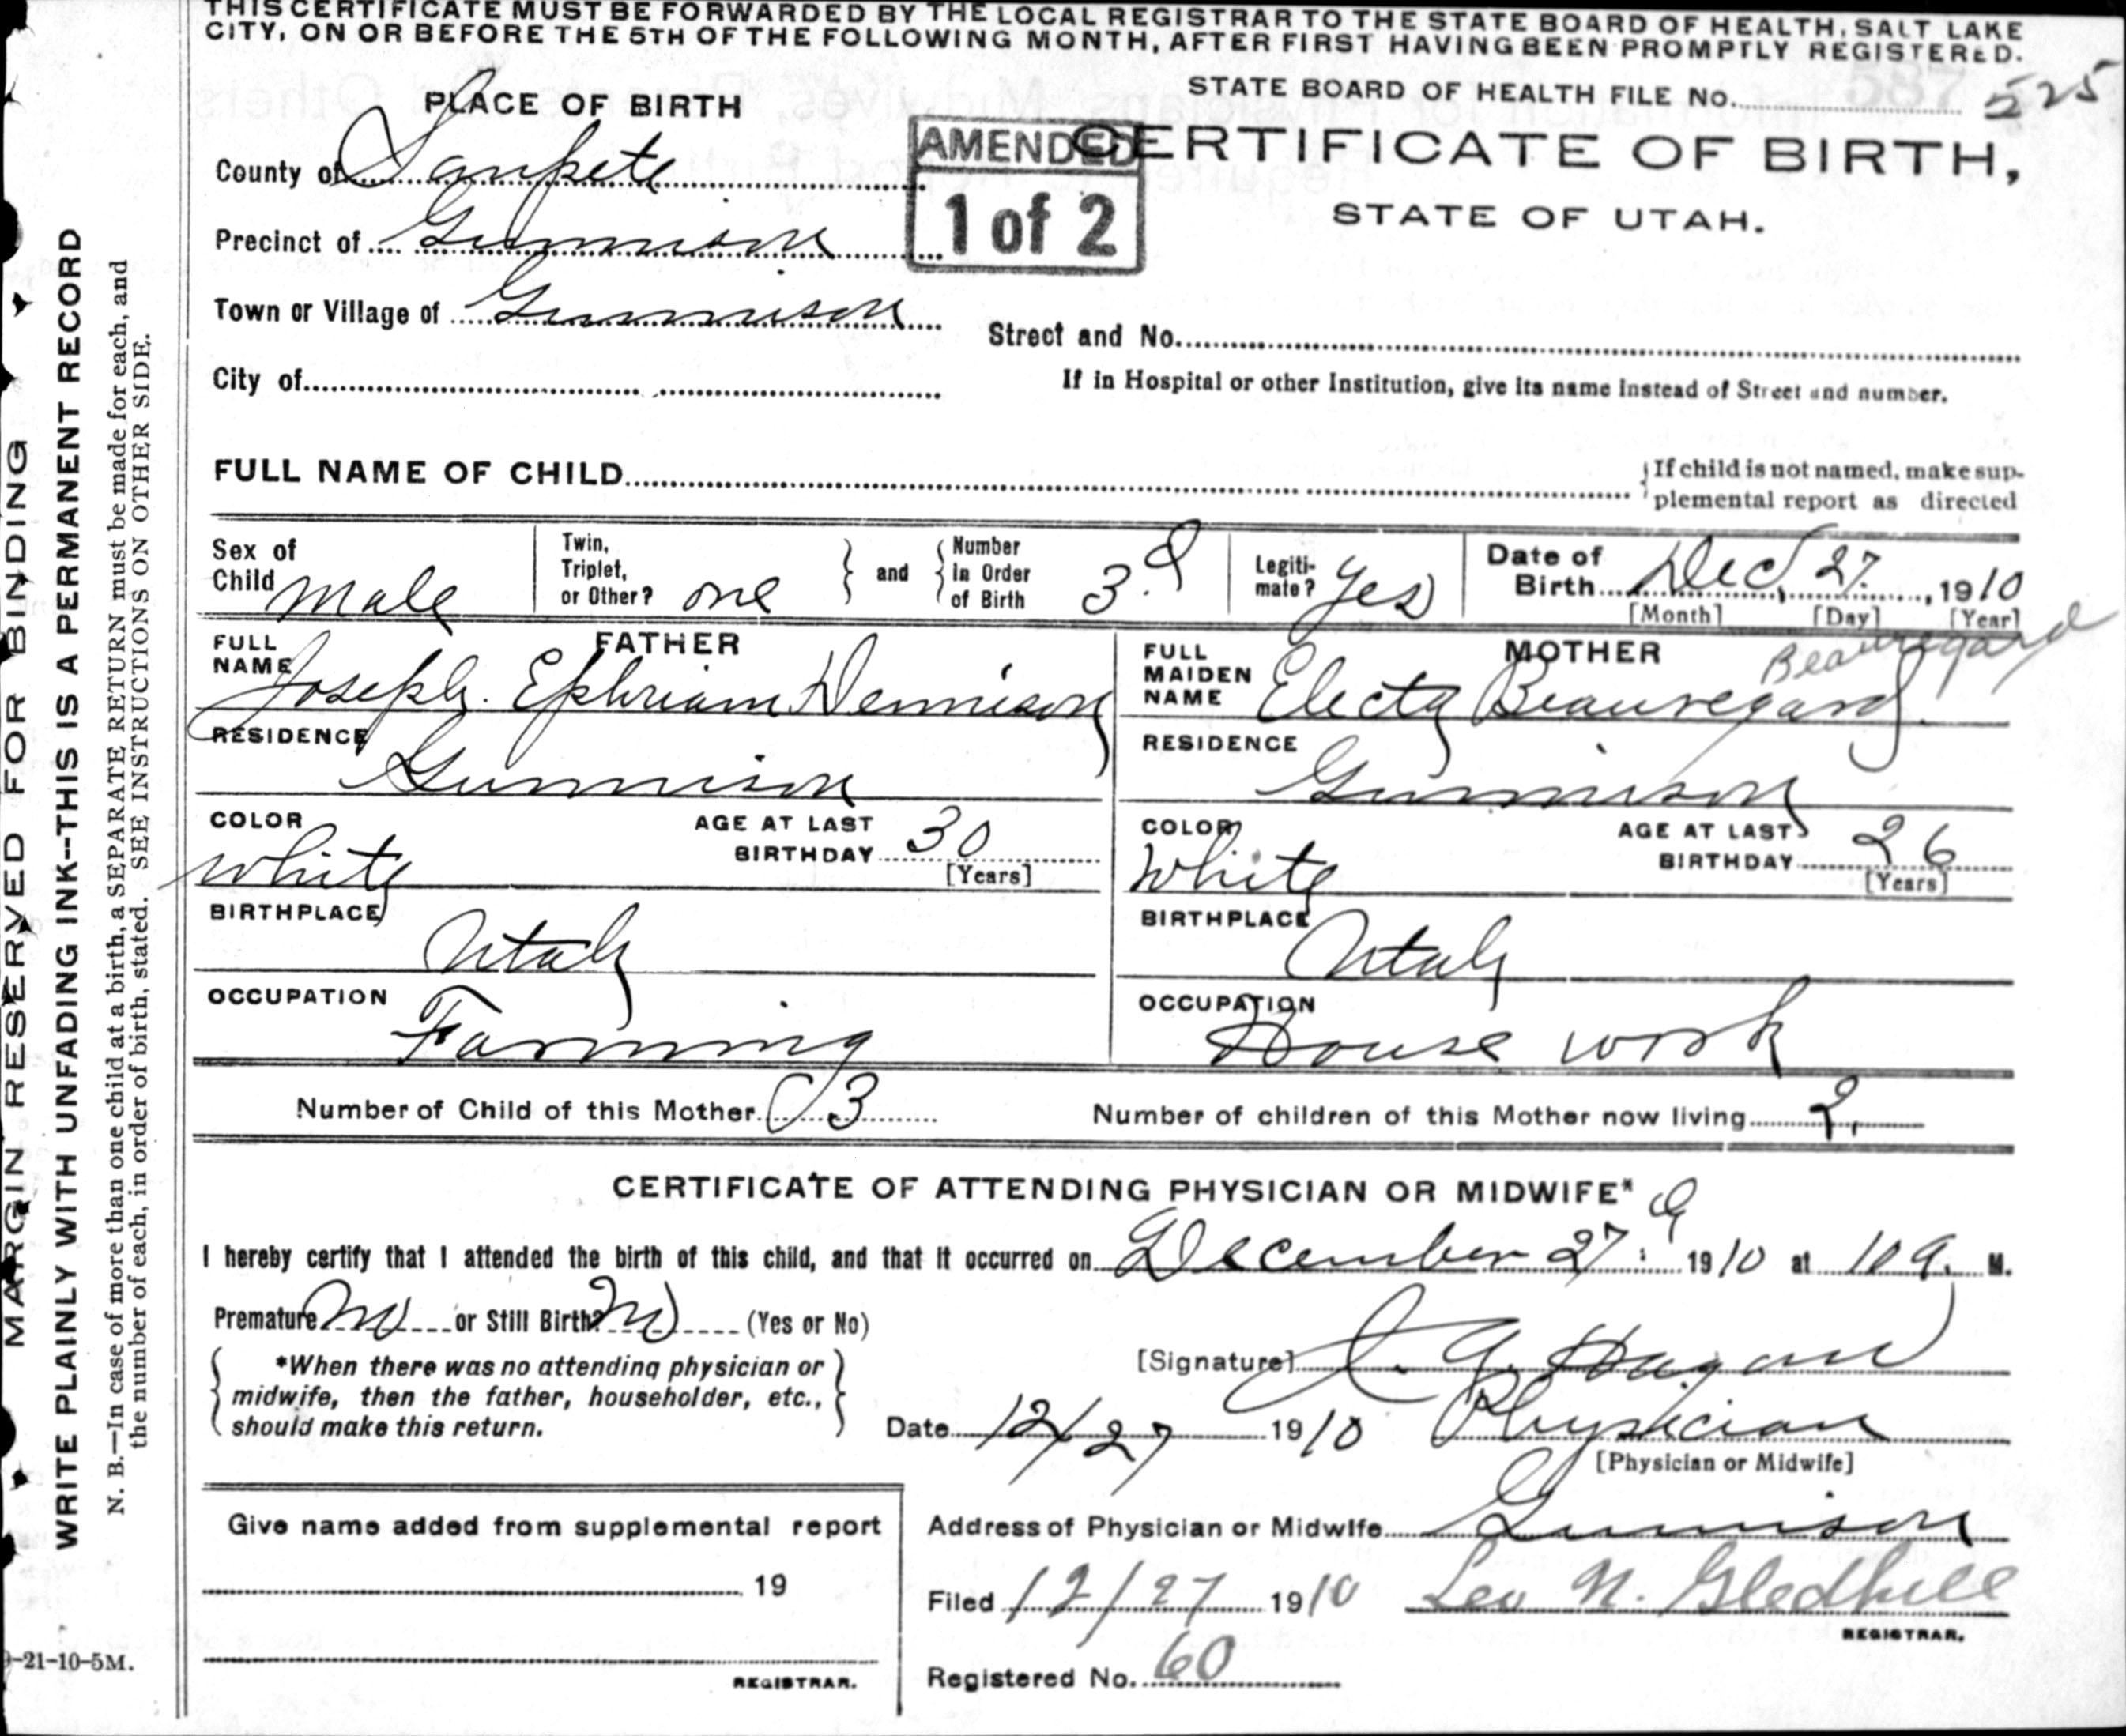 THIS CERTIFICATE MUST BE FORWARDED BY THE LOCAL REGISTRAR TO THE STATE BOARD OF HEALTH, SALT LAKE
CITY, ON OR BEFORE THE 5TH OF THE FOLLOWING MONTH, AFTER FIRST HAVING BEEN PROMPTLY REGISTERED.
STATE BOARD OF HEALTH FILE No. 525
PLACE OF BIRTH
AMENDED
1 of 2
CERTIFICATE OF BIRTH,
STATE OF UTAH.
County of Sanpete
Precinct of Gunnison
Town or Village of Gunnison
Street and No.
City of
If in Hospital or other Institution, give its name instead of Street and number.
FULL NAME OF CHILD
If child is not named, make sup-
plemental report as directed
Sex of Child Male
Twin, Triplet, or Other? one
and
Number in Order of Birth 3.d
Legiti-mate? Yes
Date of Birth Dec, 27. , 1910
[Month] [Day] [Year]
FATHER
FULL NAME Joseph. Ephriam Dennison
RESIDENCE
Gunnison
COLOR White
AGE AT LAST BIRTHDAY 30
[Years]
BIRTHPLACE
Utah
OCCUPATION
Farming
MOTHER
Beauregard
FULL MAIDEN NAME Electa Beauregard
RESIDENCE
Gunnison
COLOR White
AGE AT LAST BIRTHDAY 26
[Years]
BIRTHPLACE
Utah
OCCUPATION
House work
Number of Child of this Mother 3
Number of children of this Mother now living 2.
CERTIFICATE OF ATTENDING PHYSICIAN OR MIDWIFE*
I hereby certify that I attended the birth of this child, and that it occurred on December 27 1910 at 10 a. M.
Premature No or Still Birth? No (Yes or No)
*When there was no attending physician or
midwife, then the father, householder, etc.,
should make this return.
[Signature] Hagan
Date 12/27 1910 Physician
[Physician or Midwife]
Give name added from supplemental report
19
REGISTRAR.
Address of Physician or Midwife Gunnison
Filed 12/27 1910 Leo N. Gledhill
REGISTRAR.
Registered No. 60
MARGIN RESERVED FOR BINDING
WRITE PLAINLY WITH UNFADING INK--THIS IS A PERMANENT RECORD
N. B.—In case of more than one child at a birth, a SEPARATE RETURN must be made for each, and
the number of each, in order of birth, stated. SEE INSTRUCTIONS ON OTHER SIDE.
-21-10-5M.